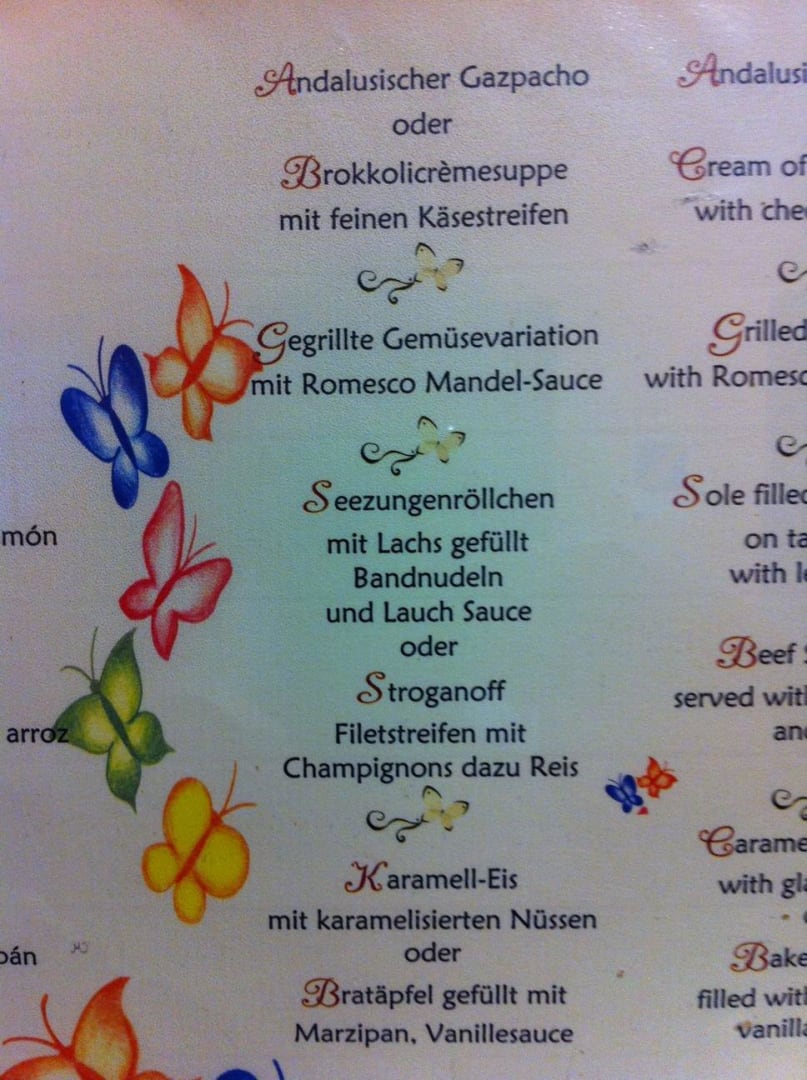 món
arroz
pán
Andalusischer Gazpacho
oder
Brokkolicrèmesuppe
mit feinen Käsestreifen
Gegrillte Gemüsevariation
mit Romesco Mandel-Sauce
Seezungenröllchen
mit Lachs gefüllt
Bandnudeln
und Lauch Sauce
oder
Stroganoff
Filetstreifen mit
Champignons dazu Reis
Karamell-Eis
mit karamelisierten Nüssen
oder
Bratäpfel gefüllt mit
Marzipan, Vanillesauce
Andalusi
Cream of
with chee
Grilled
with Romesc
Sole filled
on ta
with le
Beef
served with
and
Carame
with gla
Bake
filled with
vanilla